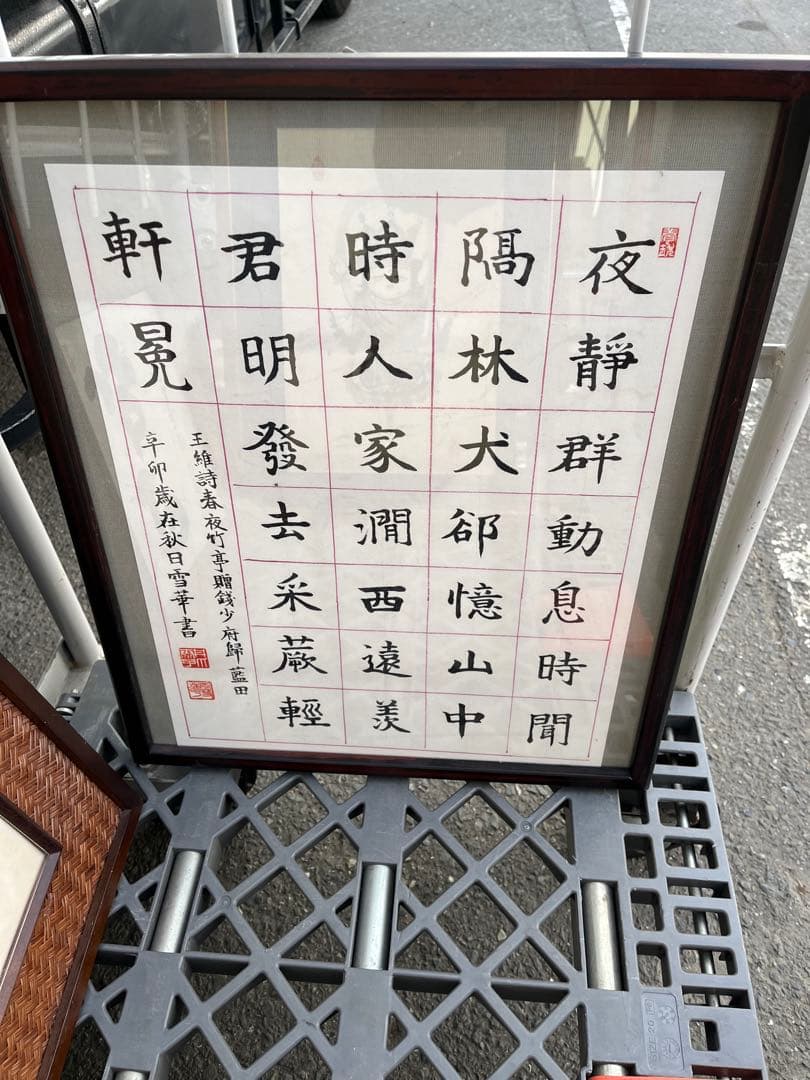 夜靜群動息時聞
隔林犬卻憶山中
時人家澗西遠羨
君明發去采蕨輕
軒冕
王維詩春夜竹亭贈錢少府歸藍田
辛卯歲在秋日雪華書